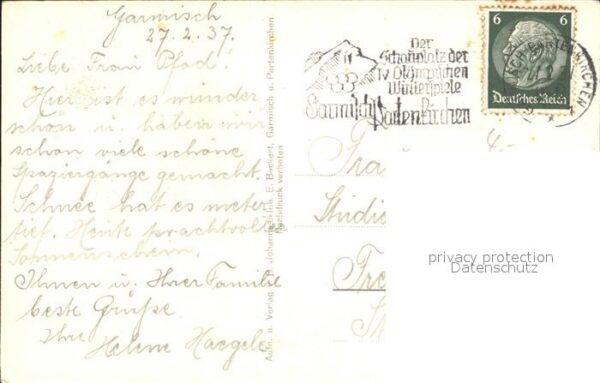 Garmisch
27.2.37.
Liebe Frau Pfad!
Hier ist es wunder
schön u. haben wir
schon viele schöne
Spaziergänge gemacht.
Schnee hat es meter
tief. Heute prachtvoll
Sonnenschein.
Ihnen u. Ihrer Familie
beste Grüße
Ihre
Helene Haegele
Aufn. u. Verlag Johannes E. Beckert, Garmisch u. Partenkirchen
Nachdruck verboten
Der
Schauplatz der
IV. Olympischen
Winterspiele
Garmisch Partenkirchen
6 6
Deutsches Reich
PARTENKIRCHEN
4.-
Fra
Studie
Fre
privacy protection
Datenschutz